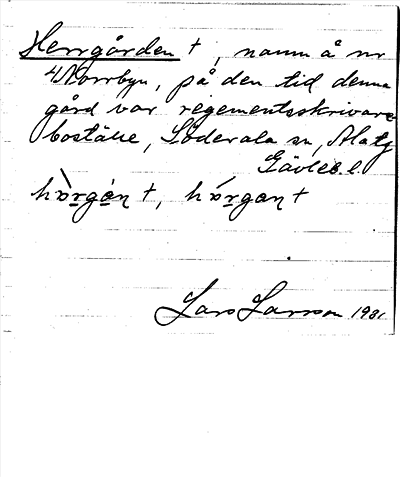 Herrgården †, namn å nr
4 Norrbyn, på den tid denna
gård var regementsskrivare
boställe, Söderala sn, Ala tg
Gävleb. l.
hòrgɑ̀n †, hórgɑn †
Lars Larsson 1931